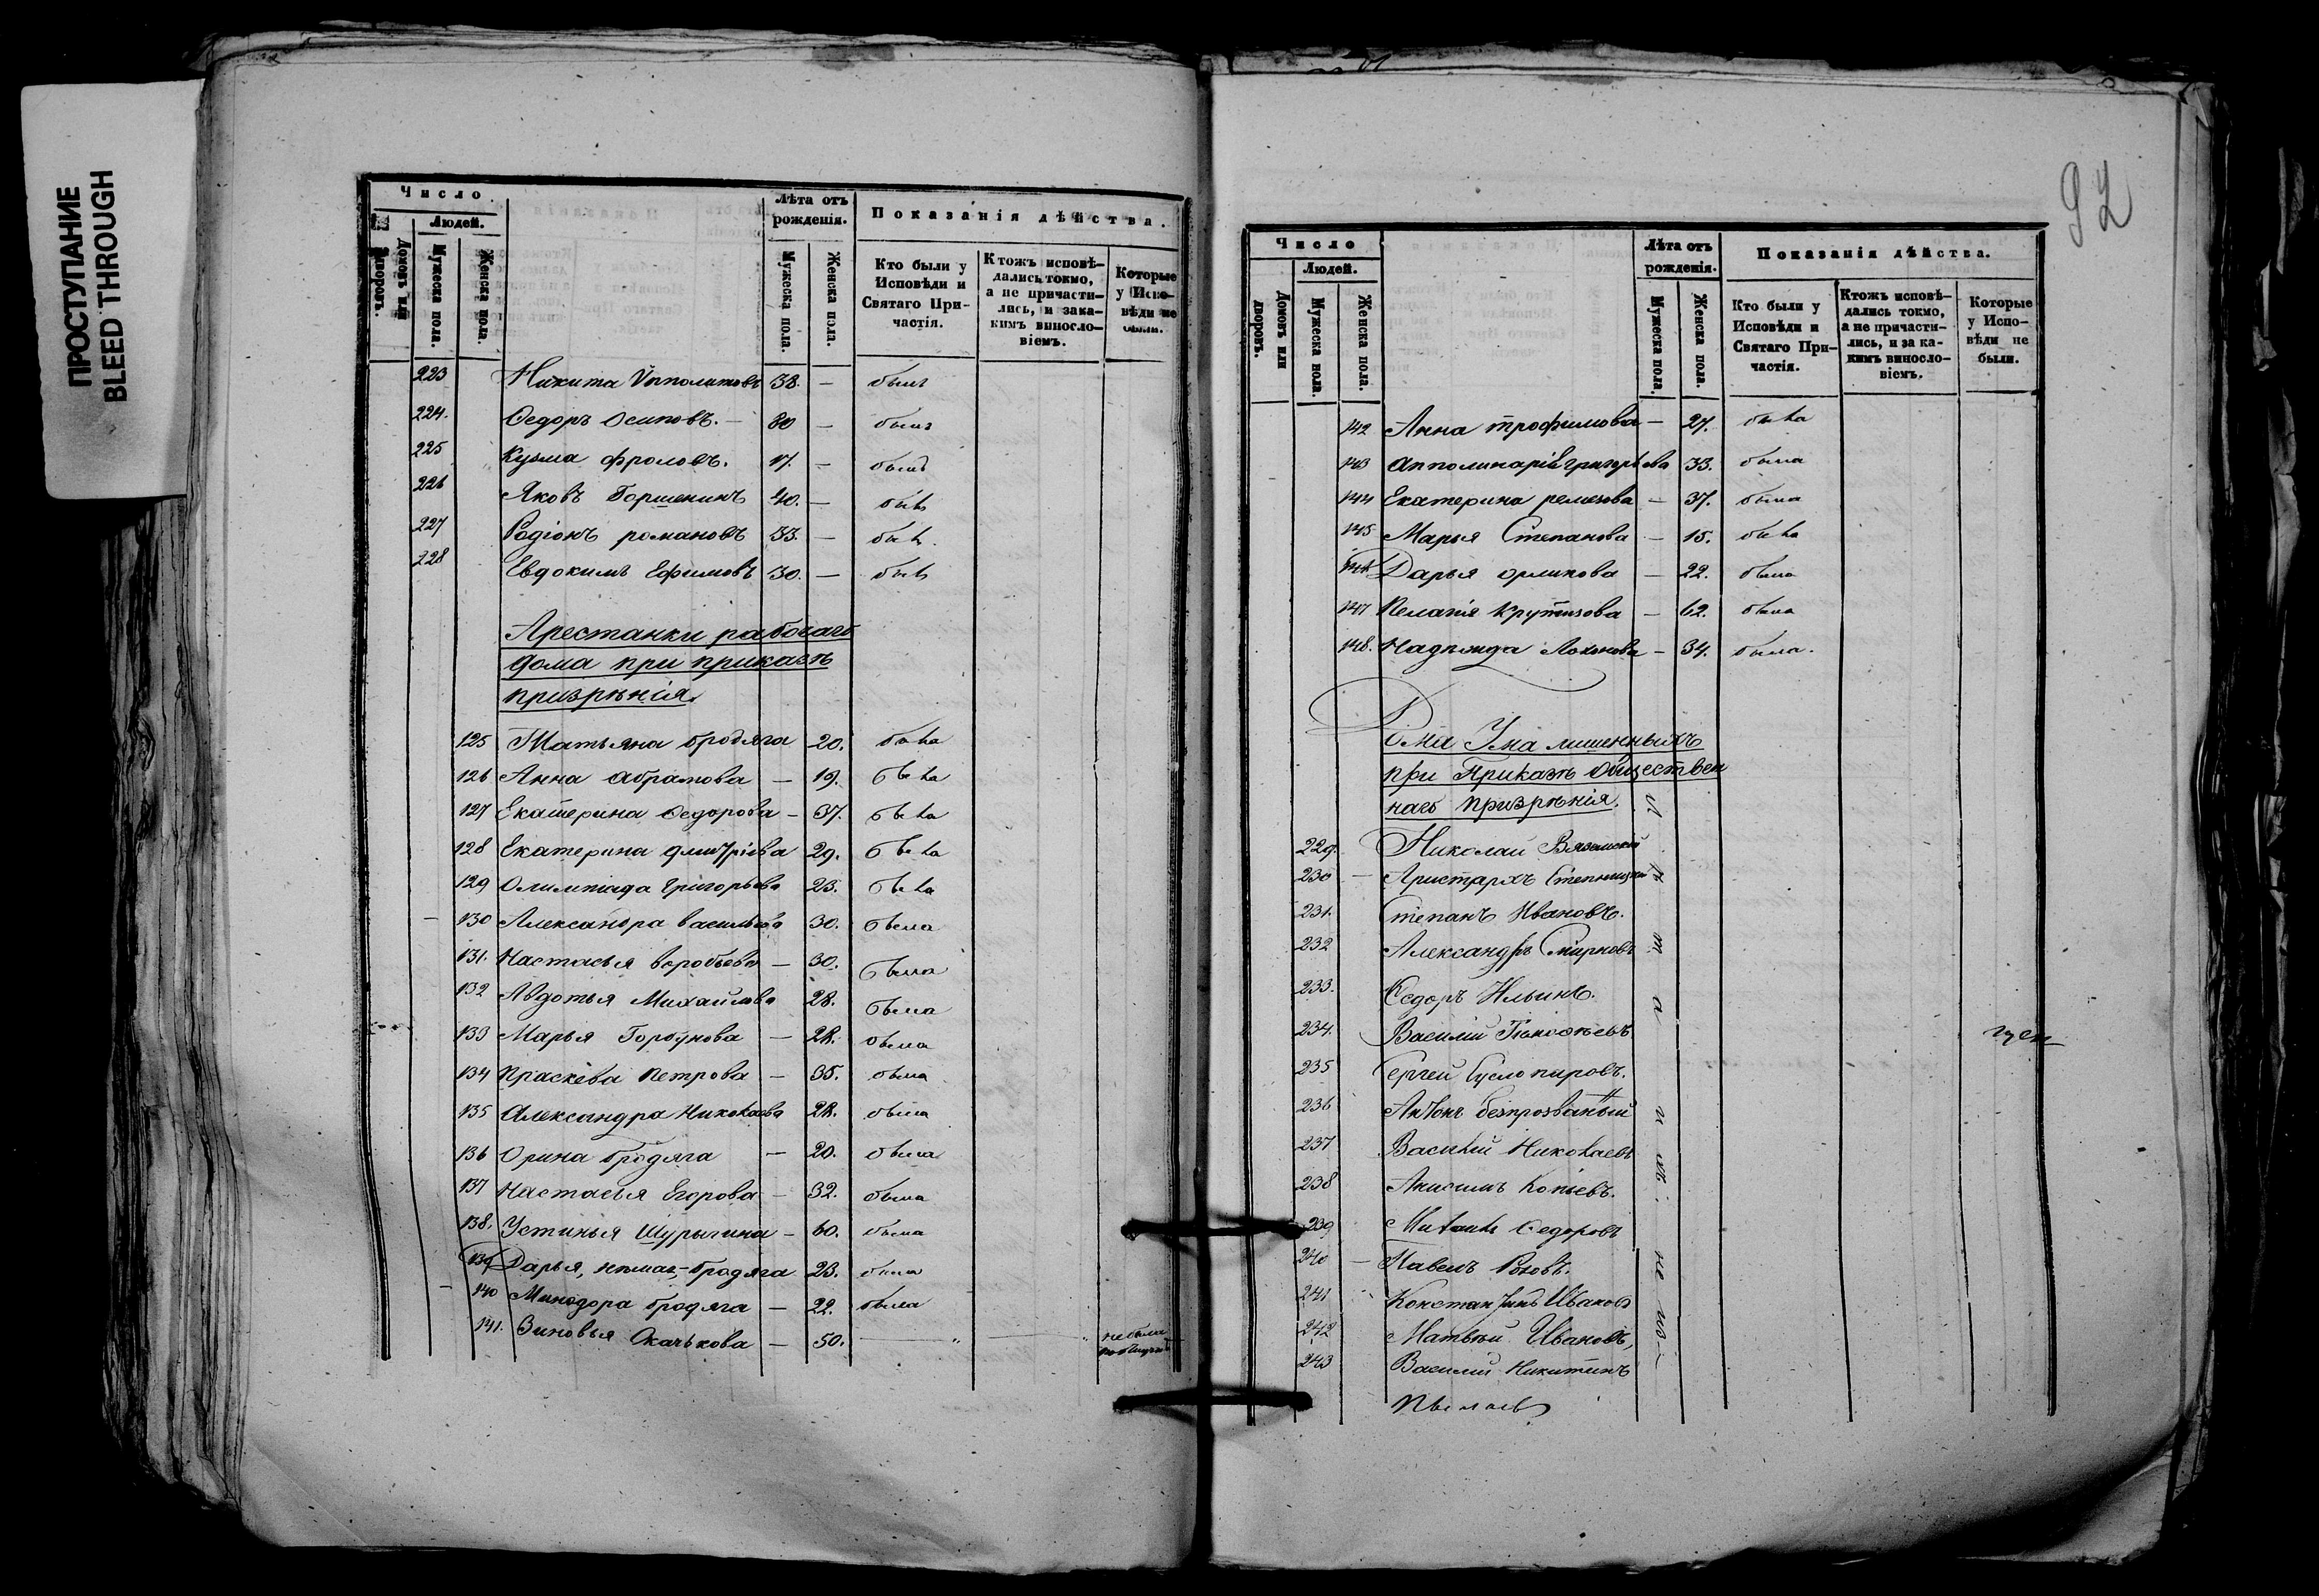 ПРОСТУПАНИЕ
BLEED THROUGH
Число
Людей.
Домовъ или дворовъ.
Мужеска пола.
Женска пола.
Лѣта отъ рожденія.
Мужеска пола.
Женска пола.
Показанія дѣйства.
Кто были у Исповѣди и Святаго Причастія.
Ктожъ исповѣдались токмо, а не причастились, и за какимъ винословіемъ.
Которые у Исповѣди не были.
223 Никита Ѵпполитовъ 38. — былъ
224. Ѳедоръ Осиповъ. — 80 — былъ
225 Кузма Фроловъ. 17. — былъ
226 Яковъ Горшенинъ 40. — былъ
227 Родіонъ романовъ 33. — былъ.
228 Евдокимъ Ефимовъ 30. — былъ
Арестанки рабочаго
дома при приказѣ
призрѣнія.
125 Татьяна бродяга 20. была
126 Анна Абрамова — 19. была
127 Екатерина Ѳедорова — 37. была
128 Екатерина Дмитріева 29. была
129 Олимпіада Григорьева 23. была
130 Александра Васильева 30. была
131. Настасья Воробьева — 30. была
132 Авдотья Михайлова 28. была
133 Марья Горбунова — 28. была
134 Праскева Петрова — 35. была
135 Александра Николаева 28. была
136 Орина бродяга — 20. была
137 Настасья Егорова — 32. была
138. Устинья Шурыгина — 60. была
139 Дарья, нѣмая,-бродяга 23. была
140 Минодора бродяга — 22. была
141. Зиновья — 50. не была
92
Число
Людей.
Домовъ или дворовъ.
Мужеска пола.
Женска пола.
Лѣта отъ рожденія.
Мужеска пола.
Женска пола.
Показанія дѣйства.
Кто были у Исповѣди и Святаго Причастія.
Ктожъ исповѣдались токмо, а не причастились, и за какимъ винословіемъ.
Которые у Исповѣди не были.
142 Анна трофимова — 27. была
143 Апполинарія Григорьева 33. была
144 Екатерина ремезова — 37. была
145 Марья Степанова — 15. была
146 Дарья орликова — 22. была
147 Пелагія — 62. была
148. Надѣжда — 34. была.
Дома Ума лишенныхъ
при Приказѣ Обществен
наго призрѣнія.
229. Николай Вяземский
230 — Аристархъ
231. Степанъ Ивановъ.
232 Александръ Смирновъ
233. Ѳедоръ Ильинъ.
234. Василій
235 Сергей
236 Антонъ безпрозваный
237 Василій Николаевъ
238 Анисимъ Копьевъ.
239 Михаилъ Ѳедоровъ
240 — Павелъ
241 Константинъ Ивановъ
242 Матвѣй Ивановъ,
243 Василій Никитинъ